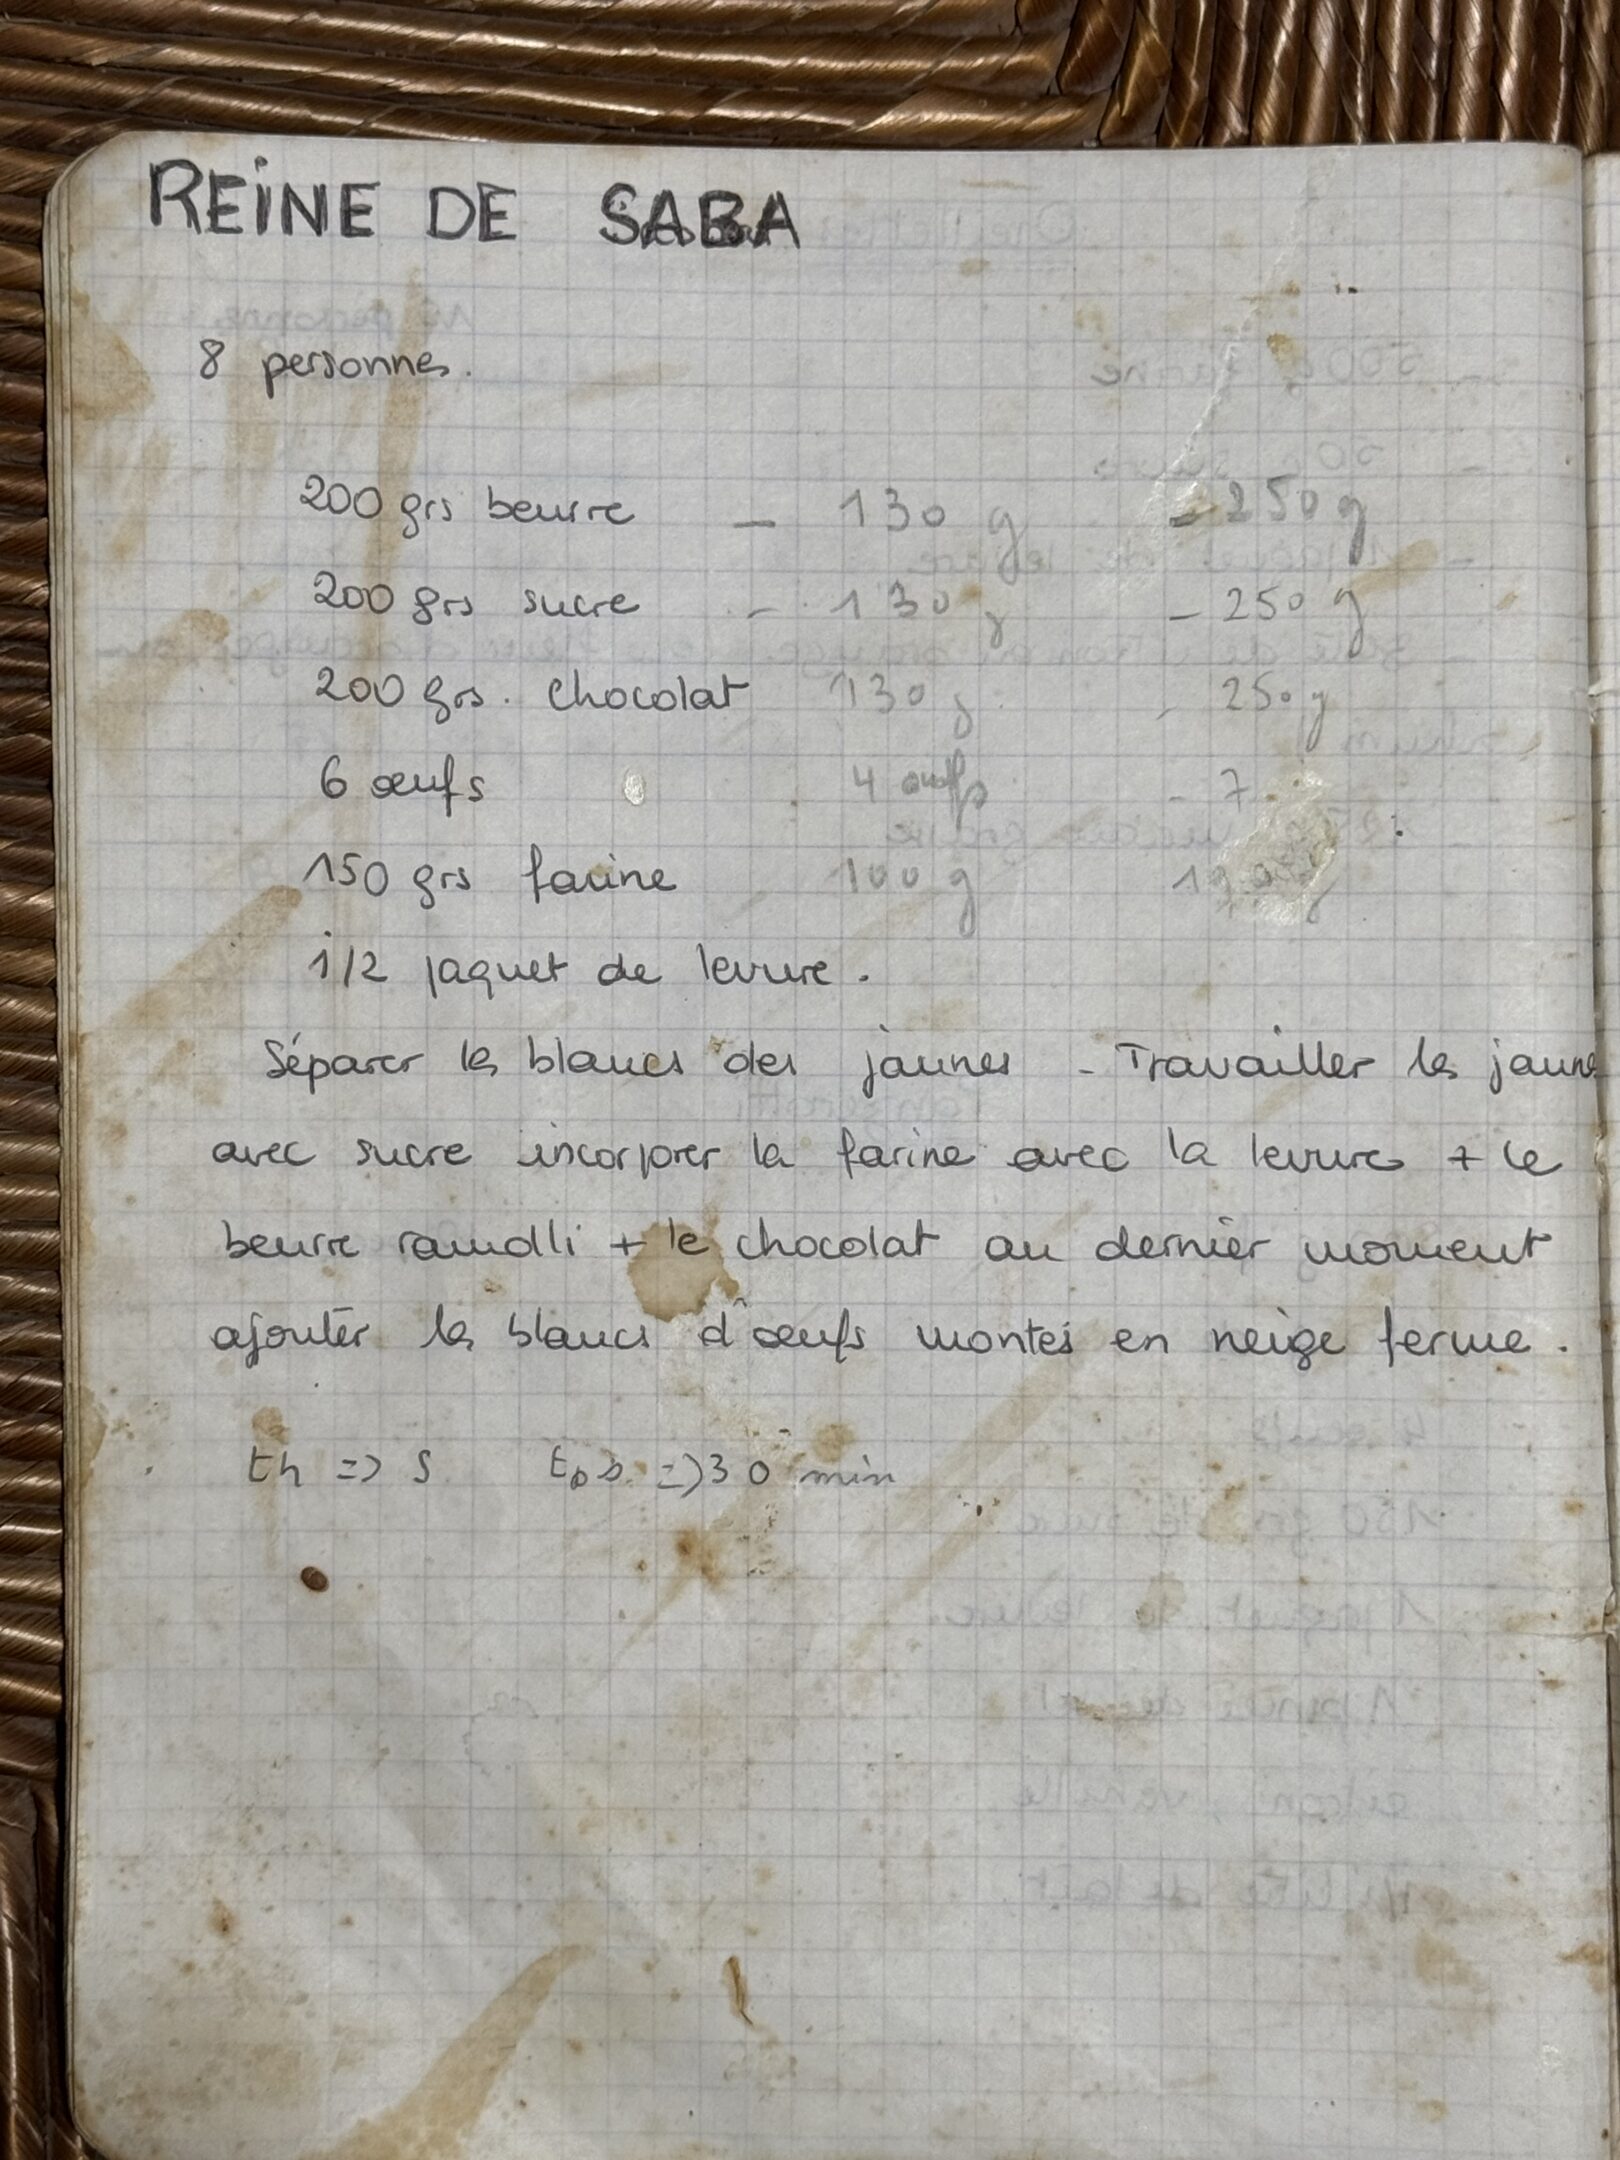 REINE DE SABA
8 personnes.
200 grs beurre - 130 g - 250 g
200 grs sucre - 130 g - 250 g
200 grs. chocolat 130 g - 250 g
6 œufs 4 œufs - 7
150 grs farine 100 g
1/2 paquet de levure.
Séparer les blancs des jaunes - Travailler les jaunes
avec sucre incorporer la farine avec la levure + le
beurre ramolli + le chocolat au dernier moment
ajouter les blancs d'œufs montés en neige ferme.
th => 5 tps => 30 min